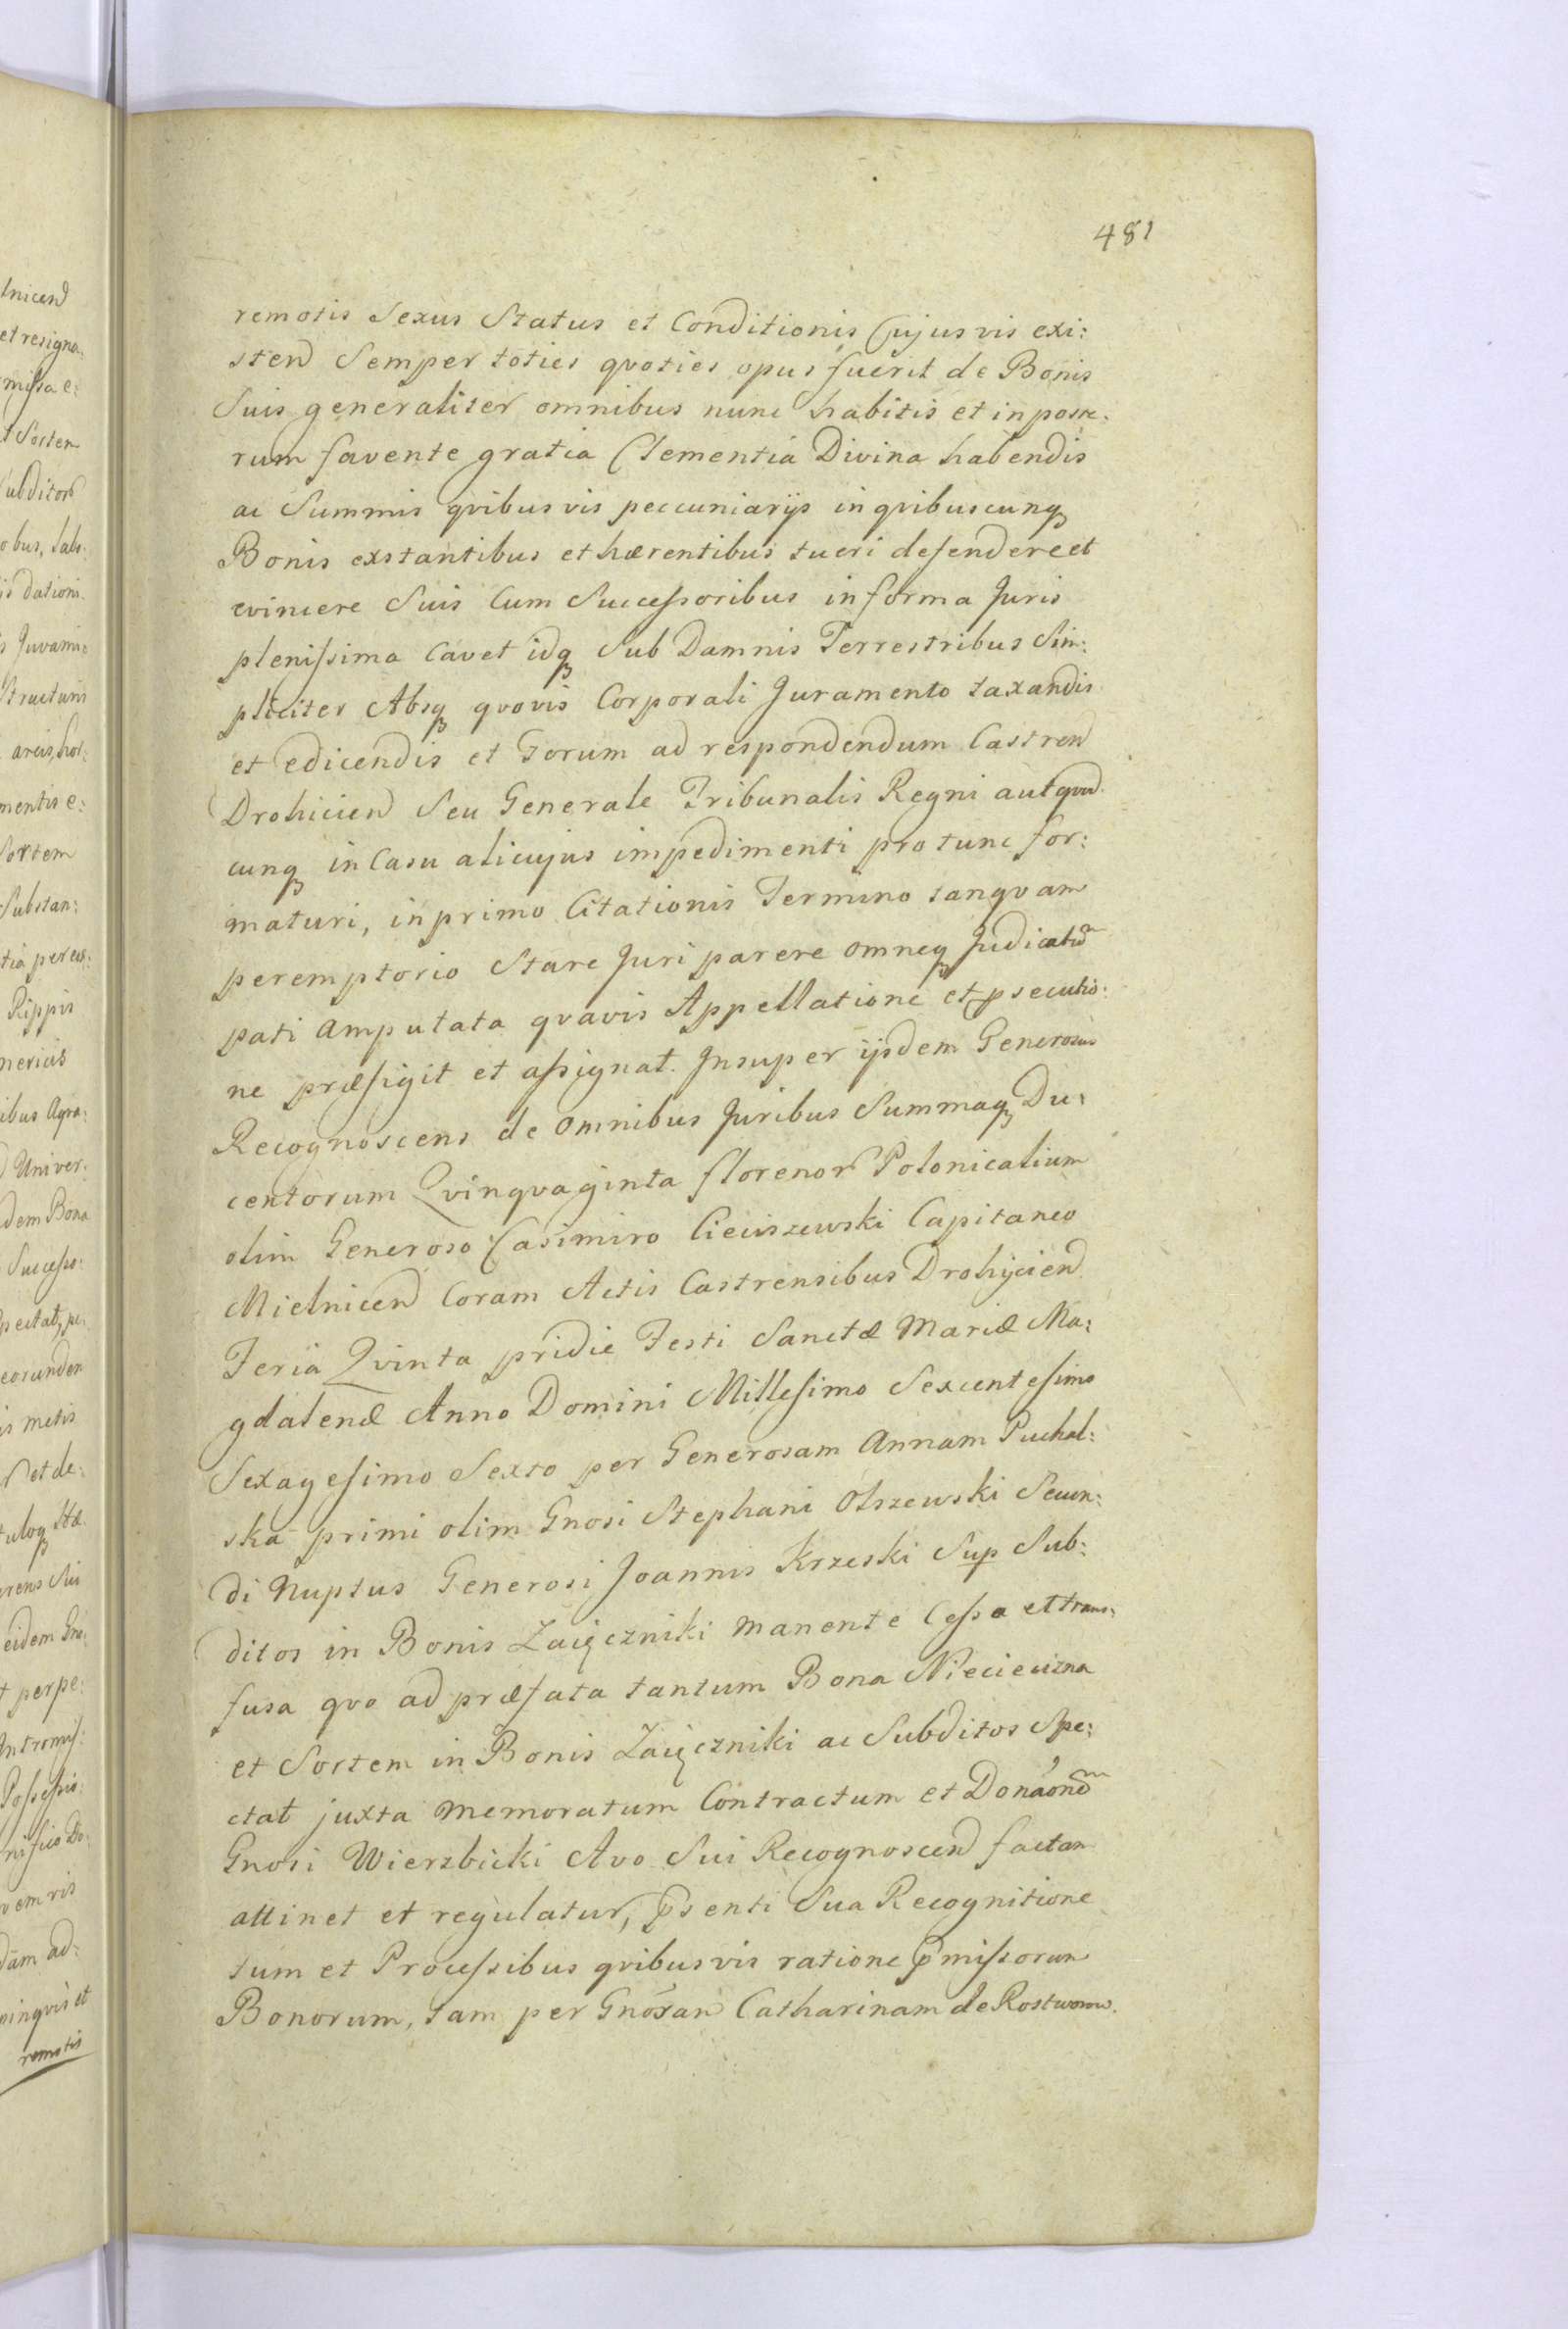 481
remotis Sexus Status et Conditionis Cujusvis exi:
sten Semper toties qvoties opus fuerit de Bonis
Suis generaliter omnibus nunc habitis et in poste:
rum favente gratia Clementia Divina habendis
ac Summis qvibusvis peccuniarijs in qvibuscunqꝫ
Bonis exstantibus et hærentibus tueri defendere et
evincere Suis Cum Successoribus in forma Juris
plenissima Cavet idqꝫ Sub Damnis Terrestribus Sim:
pliciter Absqꝫ qvovis Corporali Juramento taxandis
et edicendis et Forum ad respondendum Castren
Drohicien Seu Generale Tribunalis Regni aut qvod
cunqꝫ in Casu alicujus impedimenti pro tunc for:
maturi, in primo Citationis Termino tanqvam
peremptorio Stare Juri parere omneqꝫ Judicatū
pati amputata qvavis Appellatione et psecutio:
ne præfigit et assignat. Insuper ijsdem Generosus
Recognoscens de omnibus Juribus Summaqꝫ Du:
centorum Qvinqvaginta florenor Polonicalium
olim Generoso Casimiro Cieciszewski Capitaneo
Mielnicen Coram Actis Castrensibus Drohijcien
Feria Qvinta pridie Festi Sanctæ Mariæ Ma:
gdalenæ Anno Domini Millesimo Sexcentesimo
Sexagesimo Sexto per Generosam Annam Puchal:
ska primi olim Gnosi Stephani Olszewski Secun:
di Nuptus Generosi Joannis Krzeski Sup Sub:
ditos in Bonis Zaięczniki manente Cessa et trans:
fusa qvo ad præfata tantum Bona Niecieczna
et Sortem in Bonis Zaięczniki ac Subditos Spe:
ctat juxta memoratum Contractum et Donaonem
Gnosi Wierzbicki Avo Sui Recognoscen factam
attinet et regulatur, psenti Sua Recognitione
tum et Processibus qvibusvis ratione pmissorum
Bonorum, tam per Gnosam Catharinam de Rostworow.
lnicen
et resigna:
missa e:
t Sortem
Subditor
obus, Sals
is dationi
s Juvami:
Structuris
areis, hor:
mentis e:
Sortem
Substan:
Rippis
nericis
ibus Agra:
Univer:
dem Bona
Successo:
pectat, pe:
eorundem
is metis
et de:
rens Sui
eidem Gno:
t perpe:
Intromis:
Possessio:
em vis
dam ad:
ninqvis et
remotis